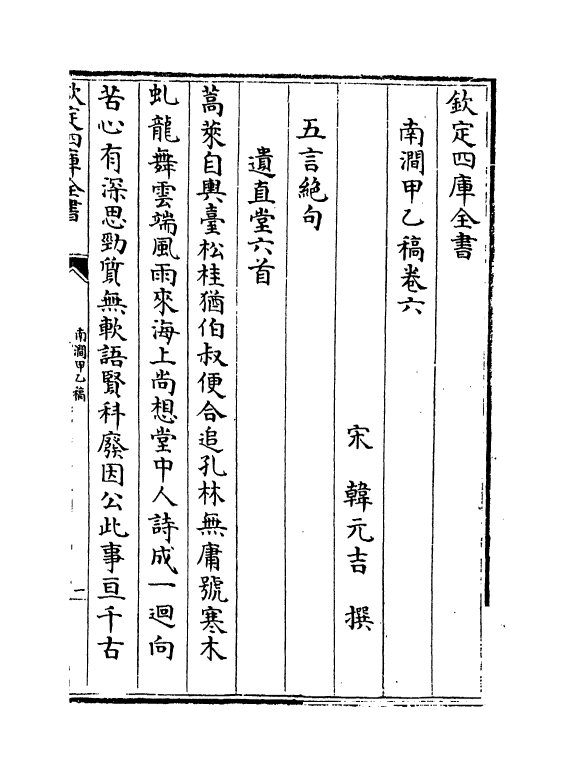 欽定四庫全書
南澗甲乙稿卷六
宋　韓元吉　撰
五言絶句
遺直堂六首
蒿萊自輿臺松桂猶伯叔便合追孔林無庸號寒木
虬龍舞雲端風雨來海上尚想堂中人詩成一迴向
苦心有深思勁質無軟語賢科廢因公此事亘千古
欽定四庫全書
南澗甲乙稿
一